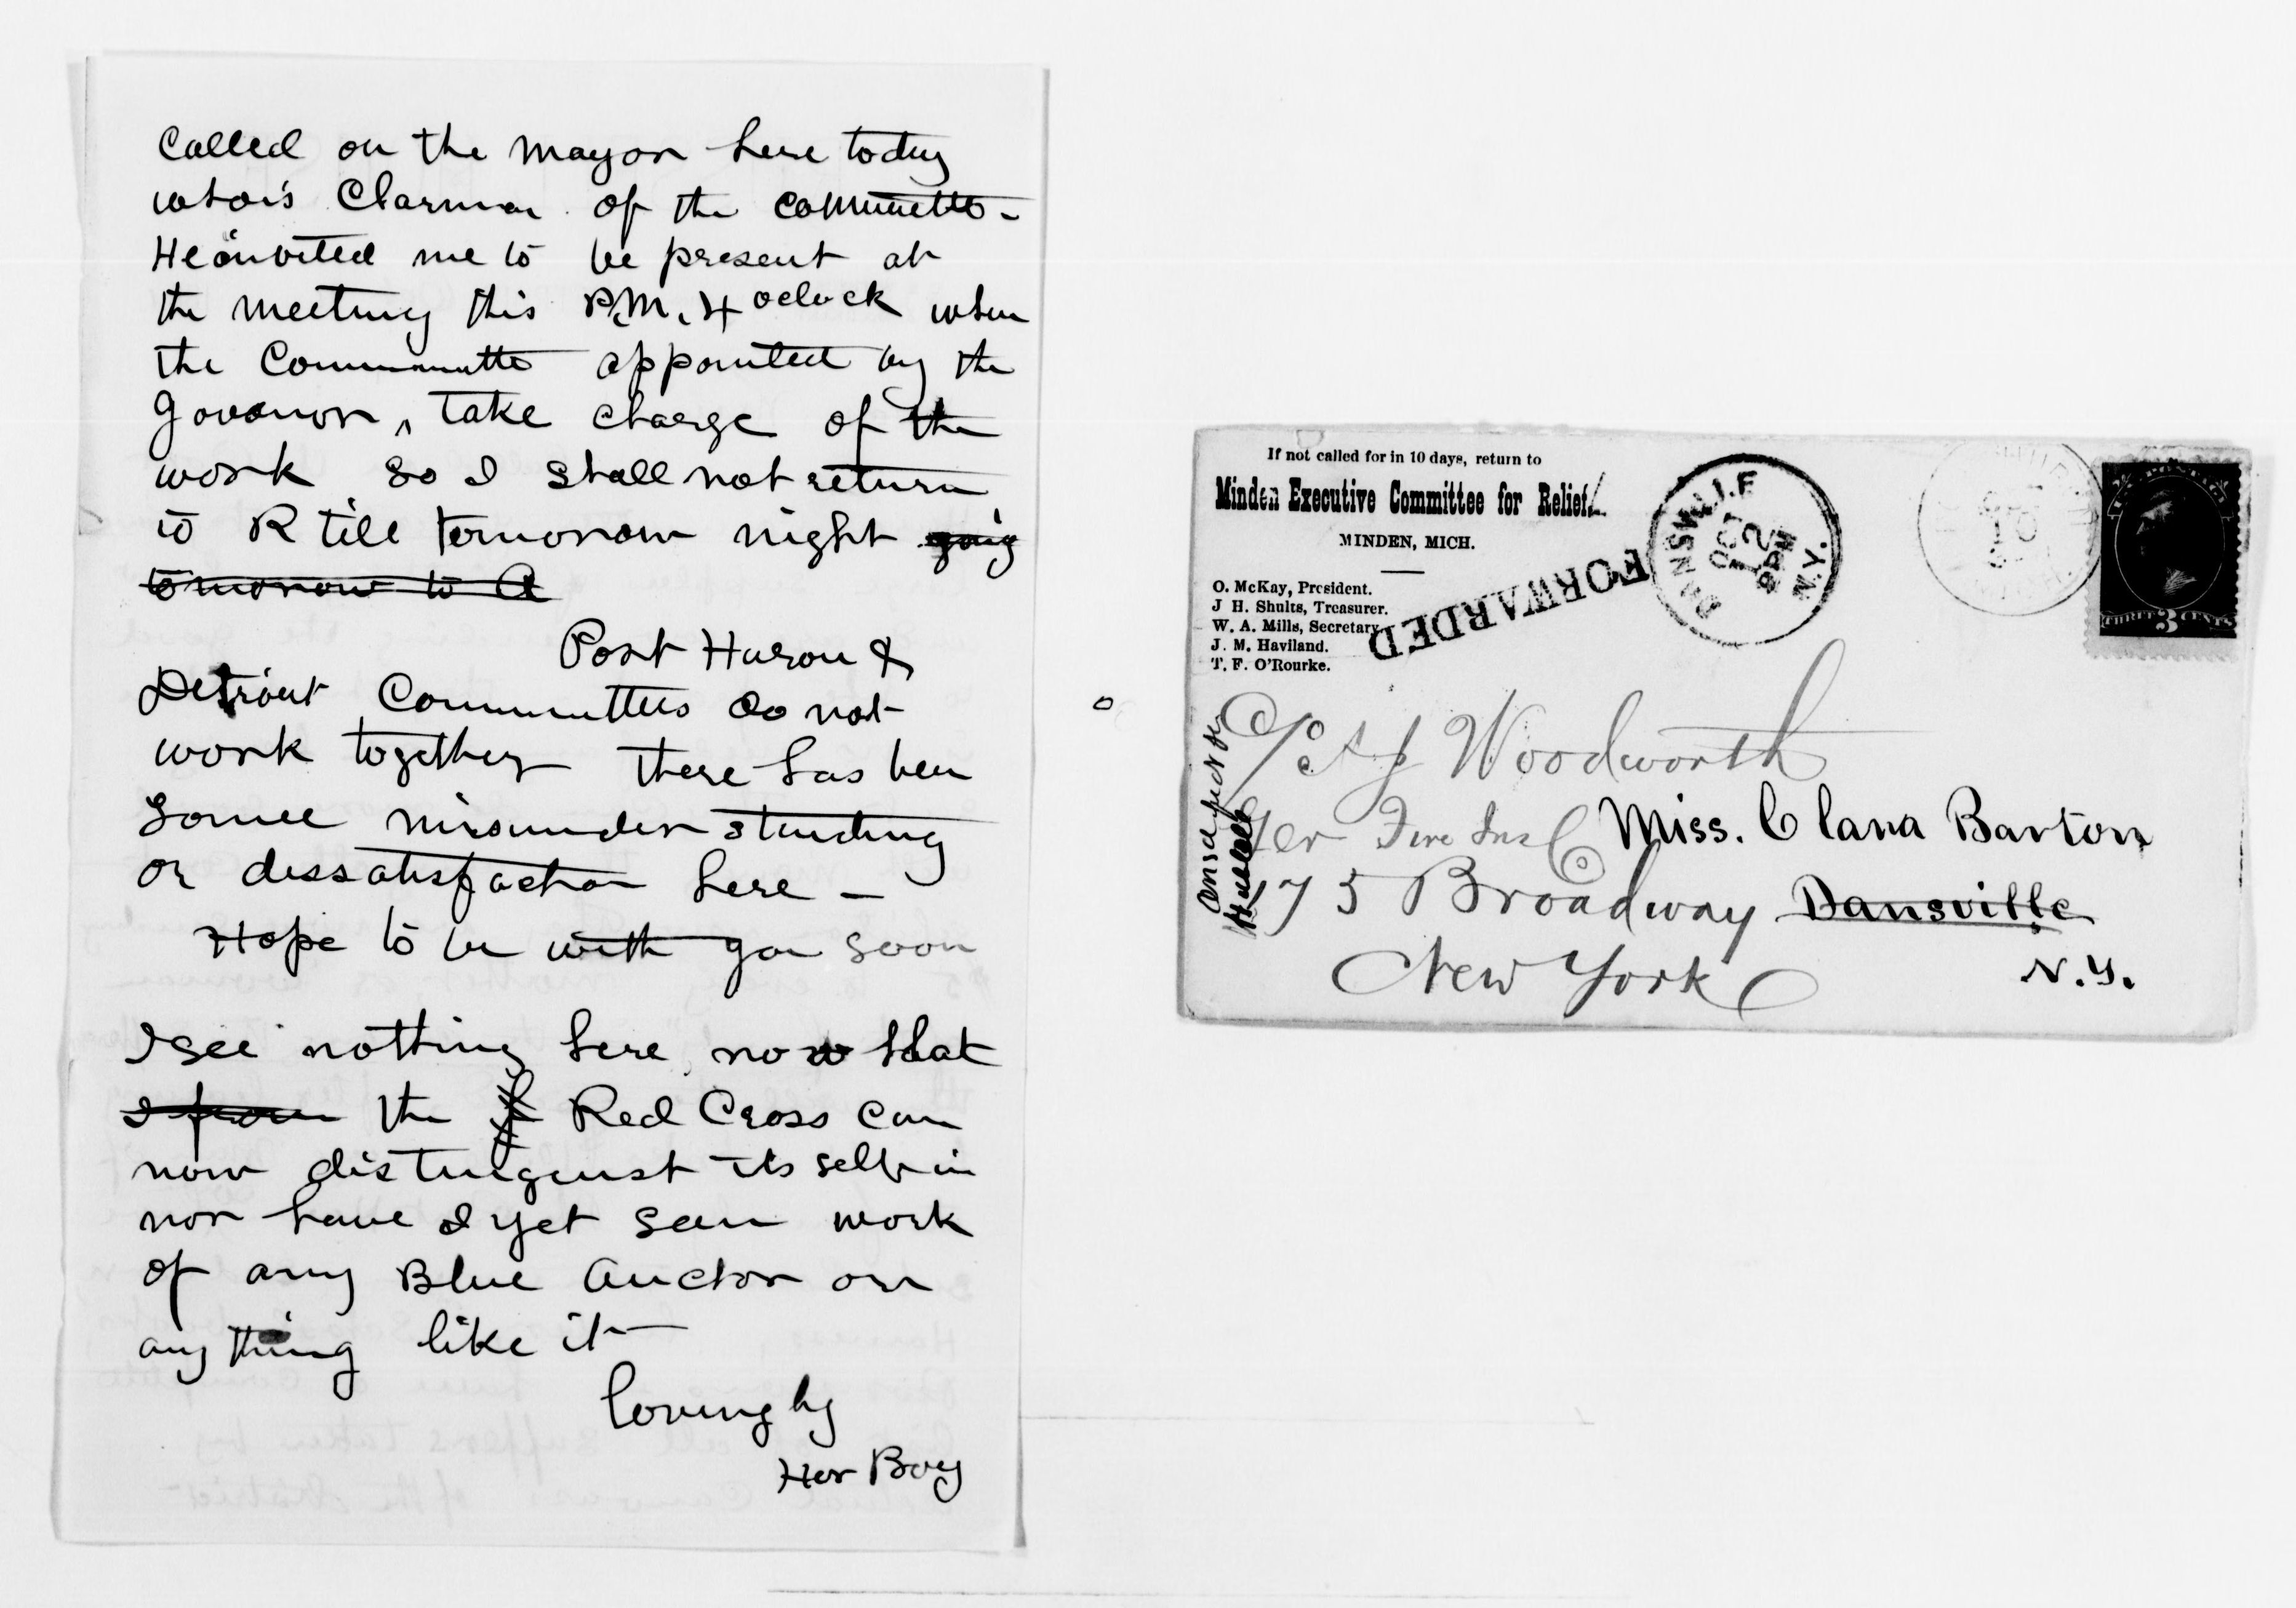 Called on the Mayor here today
whois Charman of the committee -
He invited me to be present at
the meeting this P.M. 4 oclock when
the Committe appointed by the
Govonor, take charge of the
work So I shall not return
to R till tomorrow night going
tomorrow to A
Port Huron &
Detroit Committees do not
work together there has been
Some misunderstanding
or dissatisfaction here -
Hope to be with you soon
I see nothing here now that
I from the Red Cross can
now distinguish its self in
nor have I yet seen work
of any Blue Anchor or
anything like it -
Lovingly
Her Boy
If not called for in 10 days, return to
Minden Executive Committee for Relief.
MINDEN, MICH.
O. McKay, President.
J H. Shults, Treasurer.
W. A. Mills, Secretary.
J. M. Haviland.
T. F. O'Rourke.
FORWARDED
DANSVILLE
OCT
12
2 PM
N.Y.
10
THREE 3 CENTS
C/o A J Woodworth
Ger Fire Ins Co
175 Broadway
New York
Miss. Clara Barton
Dansville
N.Y.
Hubbell